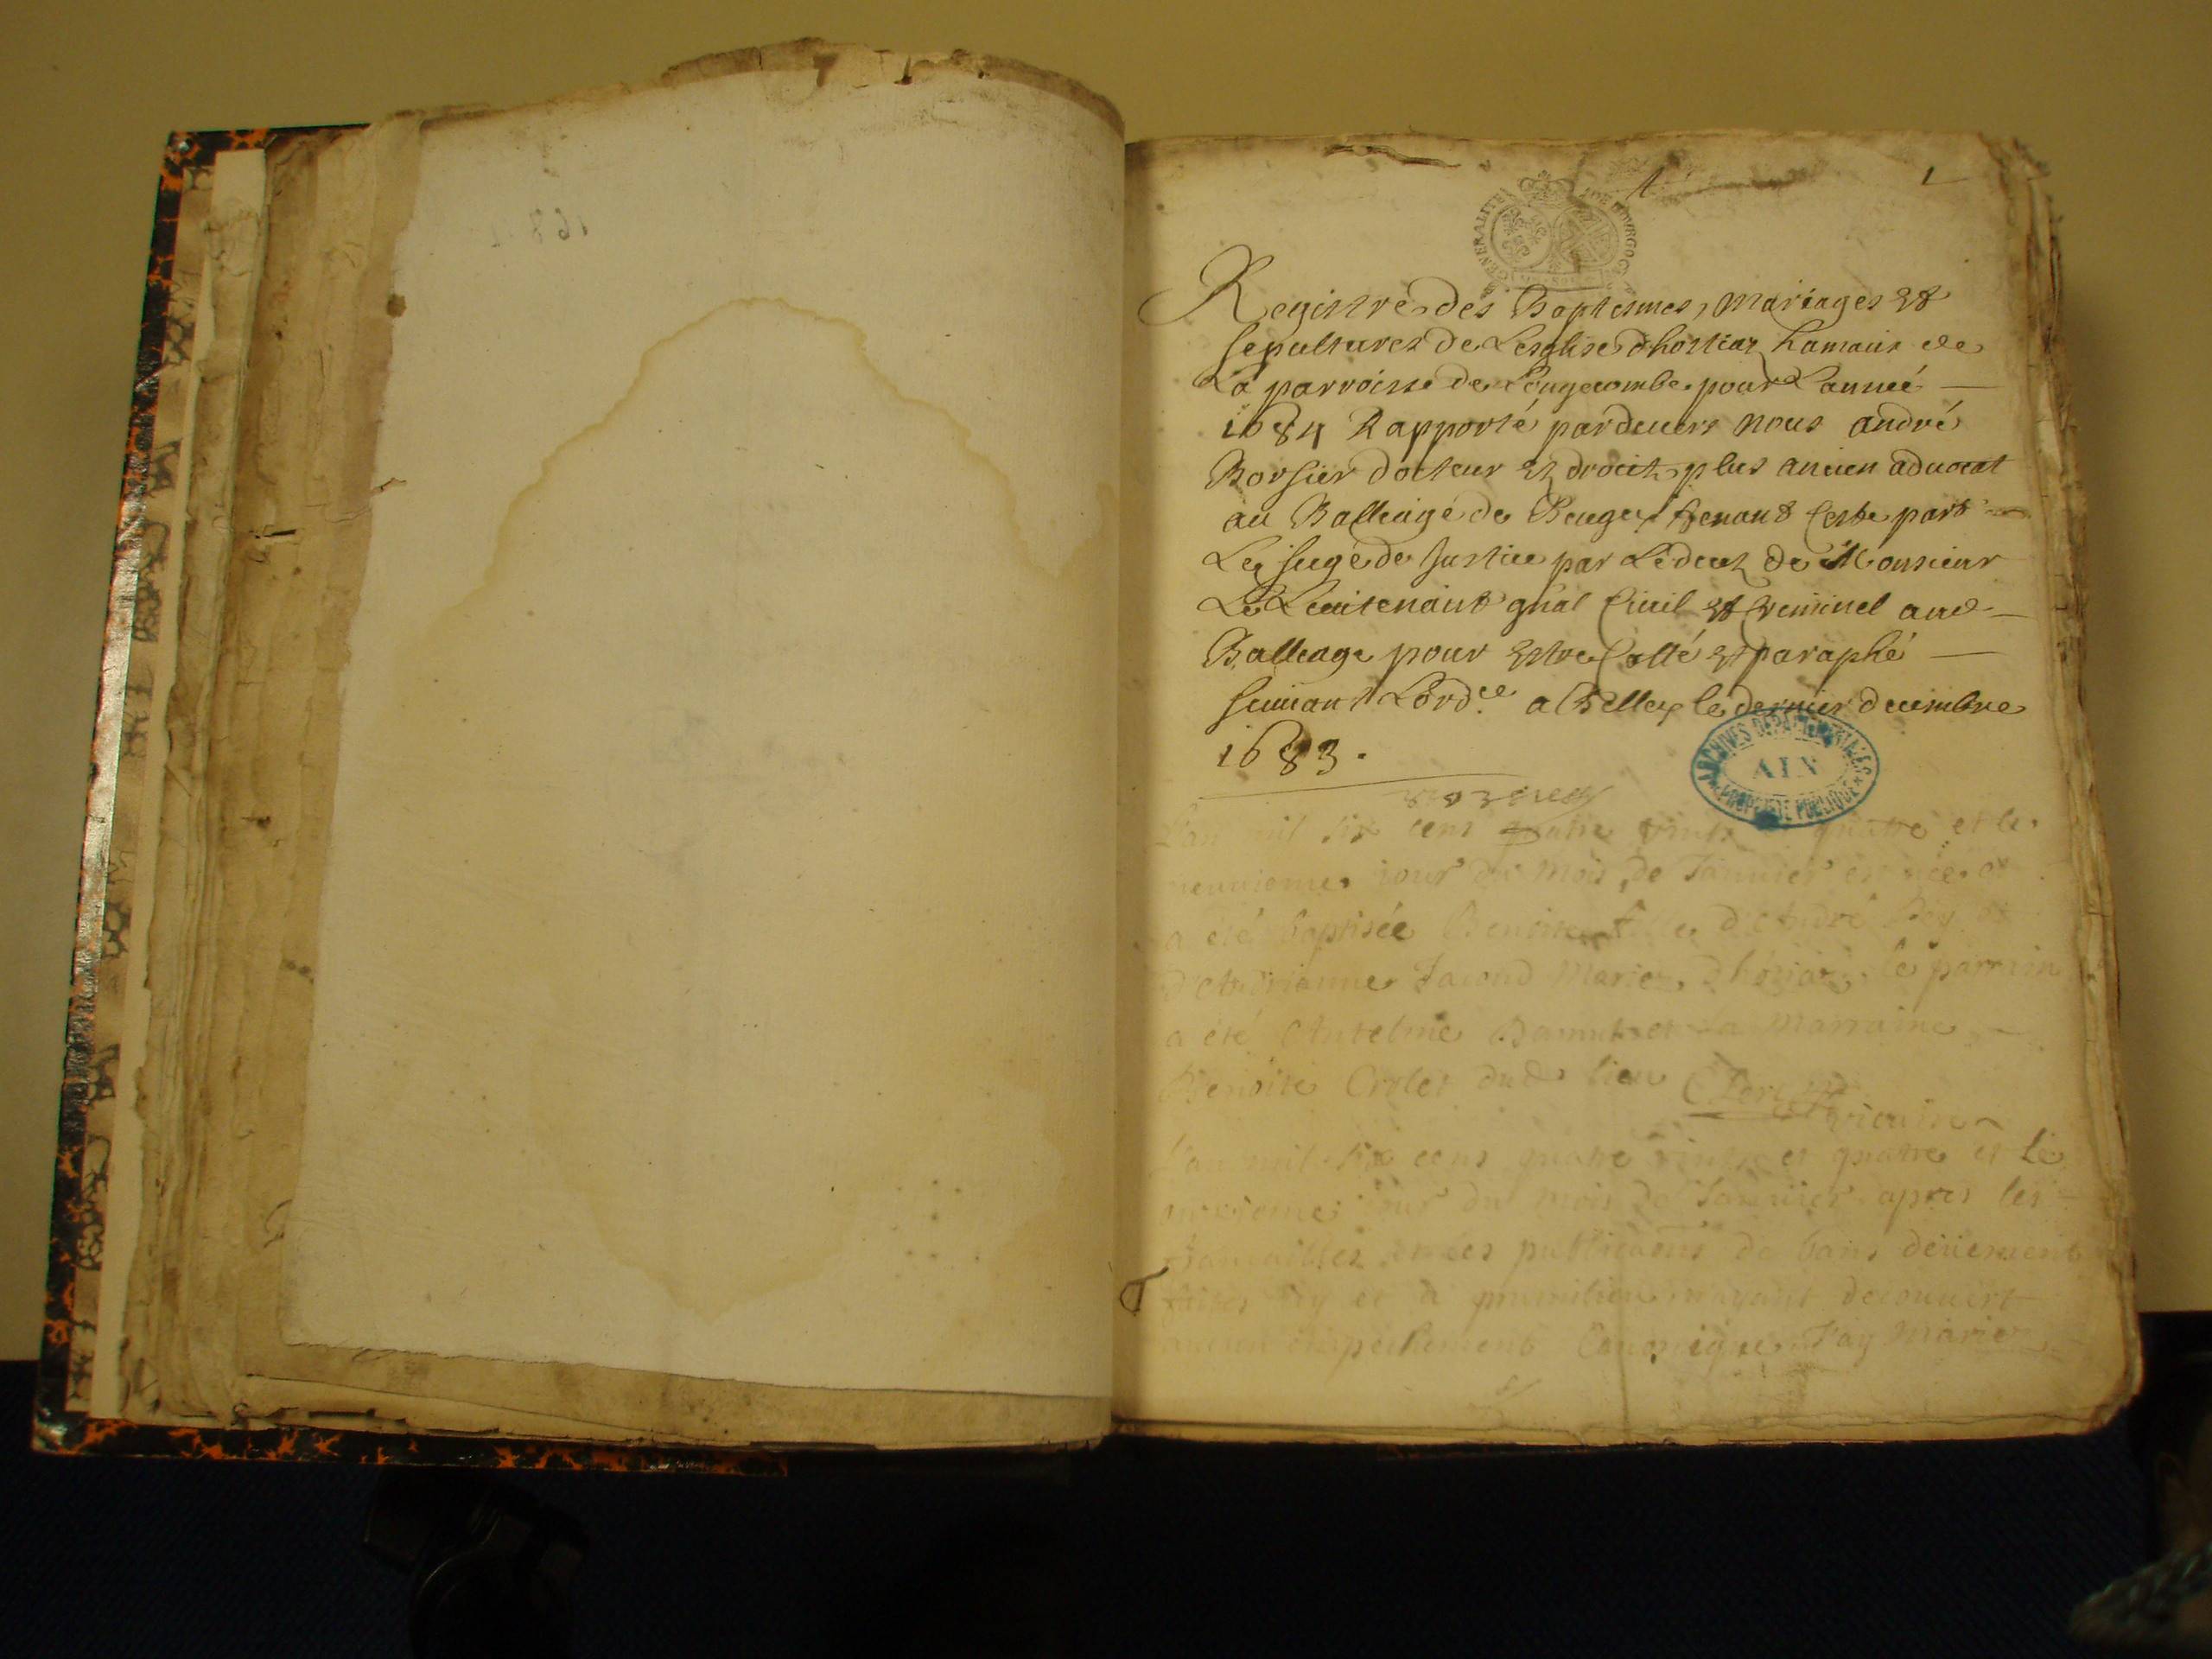 1
GENERALITE DE BOURGOGNE
Registre des Baptesmes, Mariages et
sepultures de Lesglise dhostiaz hameaux de
La parroisse de Longecombe pour Lanneé
1684 Rapporté pardeuers nous andré
Borsier docteur et droict plus ancien aduocat
au Balliage de Beugey tenant ceste part
Le siege de Justice par Ledeces de Monsieur
Le Lieutenant gnal Ciuil et Criminel aud
Balliage pour estre Cotté et paraphé
suiuant Lordce a Belley le dernier decembre
1683.
ARCHIVES DEPARTEMENTALES
AIN
PROPRIETE PUBLIQUE
L'an mil six cens quatre vints quatre et le
neuuieme jour du mois de Januier est née et
a été baptisée Benoite fille d'André
d'Andrianne Jacond Mariez d'hostiaz, le parrain
a été Antelme et La Marraine
Benoite Crolet dud lieu
vicaire
L'an mil six cens quatre vints et quatre et le
onzieme jour du mois de Januier apres les
fiancailles et les publications de bans deüement
faites icy et a n'ayant decouuert
aucun empechement Canonique J'ay Marié